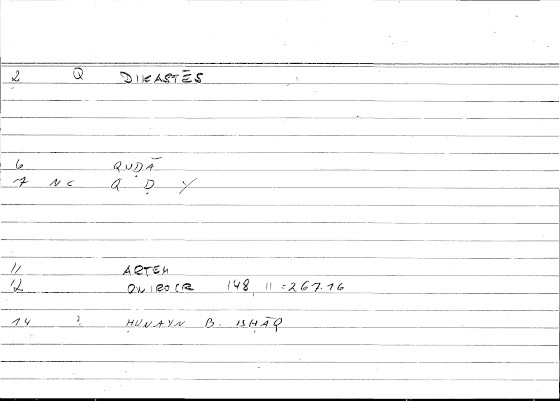 2 Q DIKASTĒS
6 QUḌĀ
7 NC Q Ḍ Y
11 ARTEM
12 ONIROCR 148, 11 = 267.16
14 ? ḤUNAYN B. ISḤĀQ